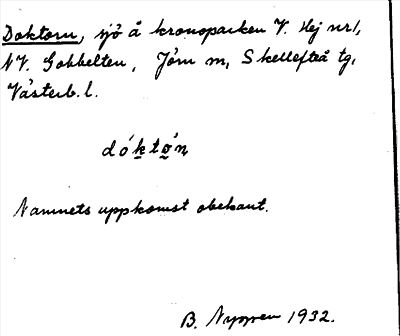 Doktorn, sjö å kronoparken V. Hej nr 1,
NV. Gobbelten, Jörn sn, Skellefteå tg,
Västerb. l.
dóktǫ́n
Namnets uppkomst obekant.
B. Nygren 1932.